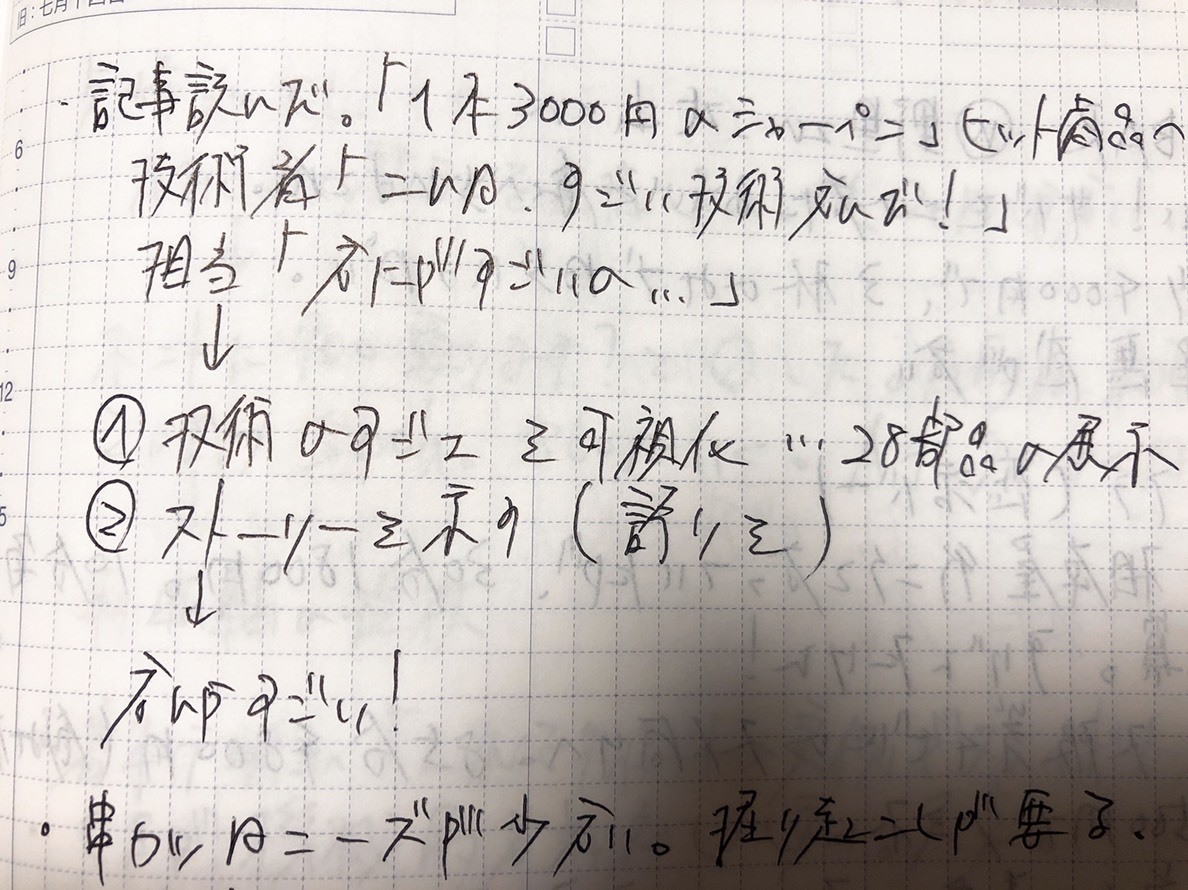 旧:七月十四日
6
・記事読んだ。「1本3000円のシャーペン」ヒット商品へ
技術者「こんな、すごい技術なんだ!」
9
担当「なにがすごいの…」
↓
12
① 技術のすごさを可視化 … 28部品の展示
② ストーリーを示す(語りを)
↓
なんかすごい!
・串かツ、チーズが少ない。掘り起こしが要る。